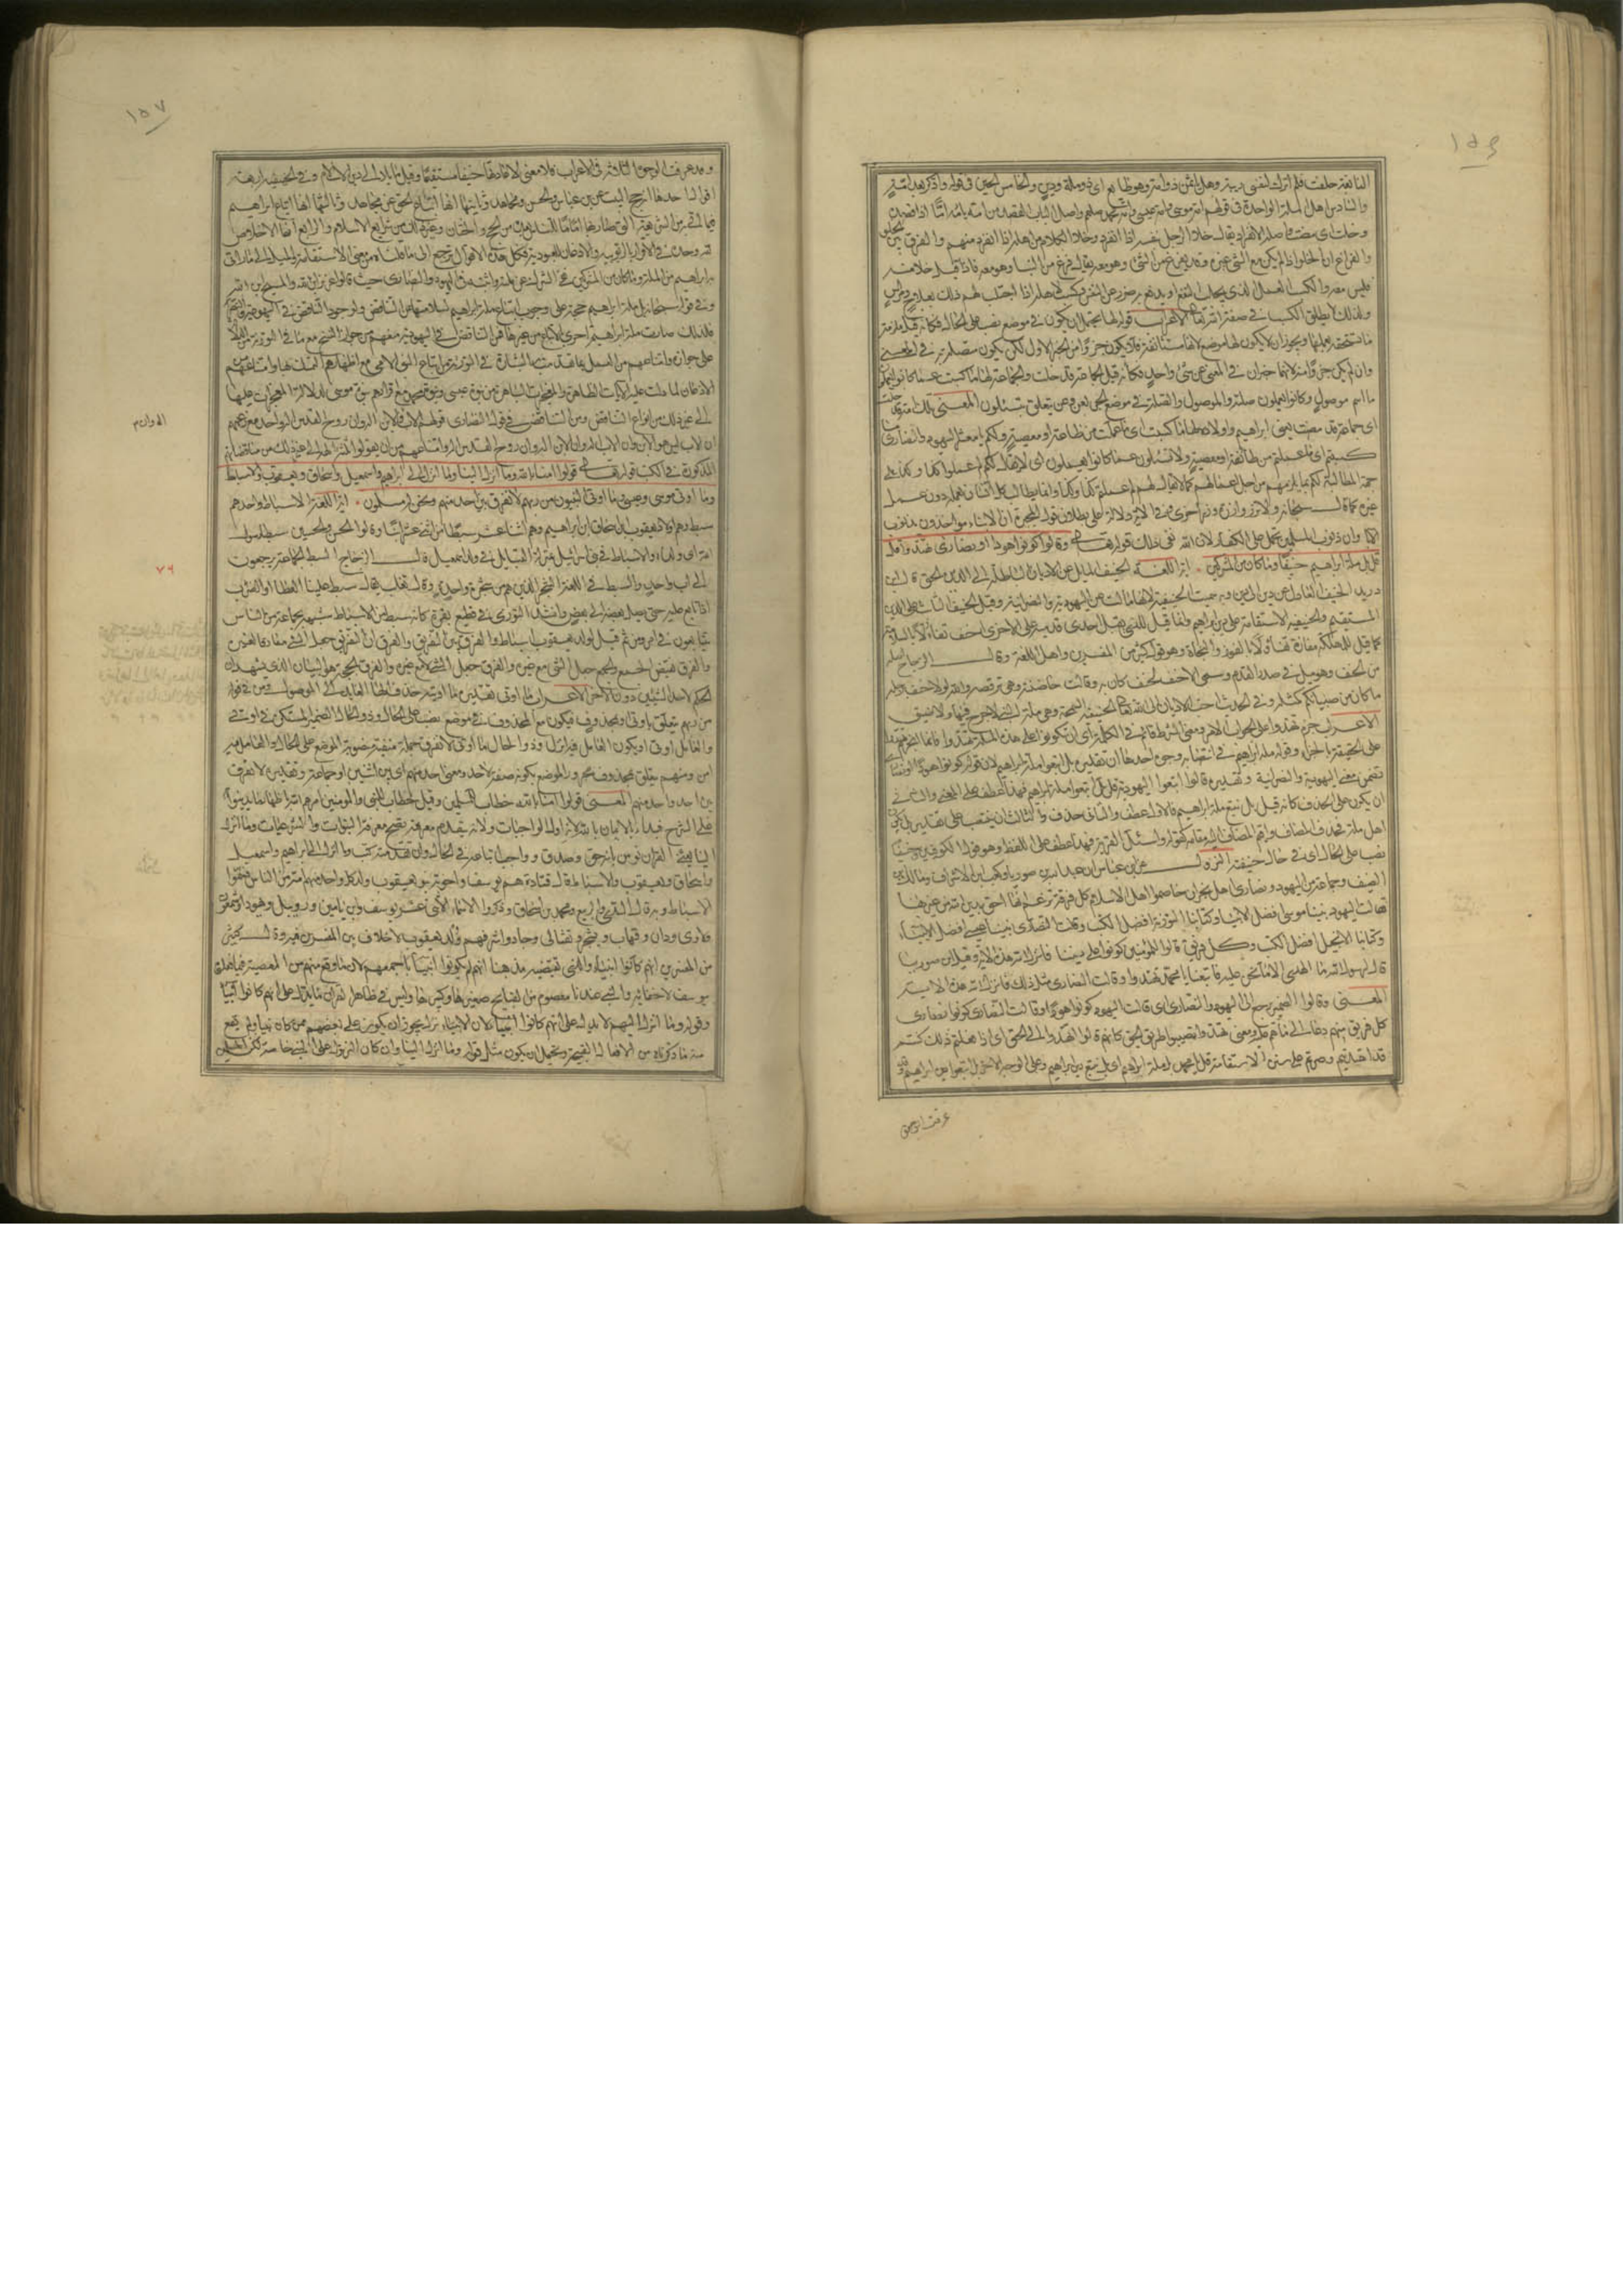 ١٥٦
النابغة حلفت فلم اترك لنفسي ريبة وهل يأثمن ذو امة وهو طايع اى ذو ملة ودين والخامس الحين في قوله واذكر بعد امة
والسادس اهل الملة الواحدة في قولهم امة موسى وامة عيسى وامة محمد صلعم واصل الباب القصد من امه يامه امّا اذا قصده
وخلت اى مضت واصله الانفراد يقال خلا الرجل بنفسه اذا انفرد وخلا المكان من اهله اذا انفرد منهم والفرق بين الخلو
والفراغ ان الخلو اذا لم يكن مع الشيء غيره وقد يفرغ من الشيء وهو معه يقال فرغ من البناء وهو معه فاذا قيل خلا منه
فليس معه والكسب العمل الذى يجلب به النفع او يدفع به ضرر عن النفس وكسب لاهله اذا اجتلب لهم ذلك بعلاج ومراس
ولذلك لا يطلق الكسب في صفة الله تعالى الاعراب قوله لها ما كسبت يحتمل ان يكون في موضع نصب على الحال فكانه قيل ملزمة
ما تستحقه بعملها ويجوز ان لا يكون لها موضع لانها مستأنفة فلا يكون جزءا من الخبر الاول لكن يكون متصلة به في المعنى
وان لم يكن جزءا منه لانهما خبران في المعنى عن شيء واحد فكانه قيل الجماعة قد خلت والجماعة لها ما كسبت عما كانوا يعملون
ما اسم موصول وكانوا يعملون صلته والموصول والصلة في موضع الجر بعن وعن يتعلق بتسئلون المعنى تلك امة قد خلت
اى جماعة قد مضت يعنى ابراهيم واولاده لها ما كسبت اى ما عملت من طاعة او معصية ولكم يا معشر اليهود والنصارى ما
كسبتم اى ما عملتم من طاعة او معصية ولا تسئلون عما كانوا يعملون اى لا يقال لكم اعملوا كذا وكذا على
جهة المطالبة لكم بما يلزمهم من اجل اعمالهم كما لا يقال لهم لم عملتم كذا وكذا وانما يطالب كل انسان بعمله دون عمل
غيره كما قال سبحانه ولا تزر وازرة وزر اخرى وفي الاية دلالة على بطلان قول المجبرة ان الابناء مواخذون بذنوب
الاباء وان ذنوب المسلمين تحمل على الكفار لان الله نفى ذلك قوله تعالى وقالوا كونوا هودا او نصارى تهتدوا
قل بل ملة ابراهيم حنيفا وما كان من المشركين اية اللغة الحنيف المايل عن الاديان الباطلة الى الدين الحق قال ابن
دريد الحنيف العادل عن دين الى دين وبه سميت الحنيفية لانها مالت عن اليهودية والنصرانية وقيل الحنيف الثابت على الدين
المستقيم والحنيفية الاستقامة على دين ابراهيم وانما قيل للذى تقبل احدى قدميه على الاخرى احنف تفاؤلا بالسلامة
كما قيل للمهلكة مفازة تفاؤلا بالفوز والنجاة وهو قول كثير من المفسرين واهل اللغة وقال الزجاج اصله
من الحنف وهو ميل في صدر القدم وسمى الاحنف لحنف كان به وقالت حاضنته وهي ترقصه والله لولا حنف برجله
ما كان من صبيانكم كمثله وفي الحديث احب الاديان الى الله تعالى الحنيفية السمحة وهي ملة النبي لا حرج فيها ولا ضيق
الاعراب جزم تهتدوا على الجواب للامر ومعنى الشرط قائم في الكلمة اى ان تكونوا على هذه الملة تهتدوا فانما انجزم تهتدوا
على الحقيقة بالجزاء وقوله ملة ابراهيم في انتصابه وجوه احدها ان تقديره بل اتبعوا ملة ابراهيم لان قوله كونوا هودا او نصارى
تضمن معنى اليهودية والنصرانية وتقديره قالوا اتبعوا اليهودية قل بل اتبعوا ملة ابراهيم فهذا عطف على المعنى والثاني
ان يكون على الحذف كانه قيل بل نتبع ملة ابراهيم فالاول عطف والثاني حذف والثالث ان ينتصب على تقدير بل نكون
اهل ملة ابراهيم فحذف المضاف واقيم المضاف اليه مقامه كقوله واسئل القرية فهذا عطف على اللفظ وهو قول الكوفيين وحنيفا
نصب على الحال اى في حال حنيفيته النزول عن ابن عباس ان عبد الله بن صوريا وكعب بن الاشرف ومالك بن
الضيف وجماعة من اليهود ونصارى اهل نجران خاصموا اهل الاسلام كل فرقة تزعم انها احق بدين الله من غيرها
فقالت اليهود نبينا موسى افضل الانبياء وكتابنا التورية افضل الكتب وقالت النصارى نبينا عيسى افضل الانبياء
وكتابنا الانجيل افضل الكتب وكل فريق قالوا للمؤمنين كونوا على ديننا فانزل الله هذه الاية وقيل ان ابن صوريا
قال لرسول الله ما الهدى الا ما نحن عليه فاتبعنا يا محمد تهتد وقالت النصارى مثل ذلك فانزل الله هذه الاية
المعنى وقالوا الضمير يرجع الى اليهود والنصارى اى قالت اليهود كونوا هودا وقالت النصارى كونوا نصارى
كل فريق منهم دعا الى ما هم عليه ومعنى تهتدوا تصيبوا طريق الحق كانهم قالوا تهتدوا الى الحق اى اذا فعلتم ذلك كنتم
قد اهتديتم وصرتم على سنن الاستقامة قل يا محمد بل ملة ابراهيم اى بل نتبع دين ابراهيم وعلى الوجه الاخر بل اتبعوا دين ابراهيم وقد
عرفت الوجوه
١٥٧
وقد عرفت الوجوه الثلثة في الاعراب فلا معنى لاعادتها حنيفا مستقيما وقيل مايلا الى دين الاسلام وفي الحنيفية اربعة
اقوال احدها انها حج البيت عن ابن عباس والحسن ومجاهد وثانيها انها اتباع الحق عن مجاهد وثالثها انها اتباع ابراهيم
فيما اتى به من الشريعة التي صار بها اماما للناس بعده من الحج والختان وغير ذلك من شرايع الاسلام والرابع انها الاخلاص
لله وحده في الاقرار بالربوبية والاذعان للعبودية وكل هذه الاقوال ترجع الى ما قلناه من معنى الاستقامة والميل الى ما اتى
به ابراهيم من الملة وما كان من المشركين نفى الشرك عن ملته واثبته في اليهود والنصارى حيث قالوا عزير ابن الله والمسيح ابن الله
وفي قوله سبحانه بل ملة ابراهيم حجة على وجوب اتباع ملة ابراهيم لسلامتها من التناقض ولوجود التناقض في اليهودية والنصرانية
فلذلك صارت ملة ابراهيم احرى بالاتباع من غيرها فمن التناقض في اليهودية منعهم من جواز النسخ مع ما في التورية من الدلالة
على جوازه وامتناعهم من العمل بما تقدمت به البشارة في التورية من اتباع النبي الامي مع اظهارهم التمسك بها وامتناعهم من
الاذعان لما دلت عليه الايات الظاهرة والمعجزات الباهرة من نبوة عيسى ونبوة محمد مع اقرارهم بنبوة موسى لدلالة المعجزات عليها
الى غير ذلك من انواع التناقض ومن التناقض في قول النصارى قولهم الاب والابن وروح القدس اله واحد مع زعمهم
ان الاب ليس هو الابن وان الاب اله والابن اله وروح القدس اله وامتناعهم من ان يقولوا ثلثة الهة الى غير ذلك من مناقضاتهم
المذكورة في الكتب قوله تعالى قولوا امنا بالله وما انزل الينا وما انزل الى ابراهيم واسمعيل واسحاق ويعقوب والاسباط
وما اوتى موسى وعيسى وما اوتى النبيون من ربهم لا نفرق بين احد منهم ونحن له مسلمون اية اللغة الاسباط واحدهم
سبط وهم اولاد يعقوب بن اسحاق بن ابراهيم وهم اثنا عشر سبطا من اثنى عشر ابنا وقالوا الحسن والحسين سبطا رسول
الله اى ولداه والاسباط في بني اسرائيل بمنزلة القبائل في ولد اسمعيل قال الزجاج السبط الجماعة يرجعون
الى اب واحد والسبط في اللغة الشجر الذين هم من شجرة واحدة وقال ثعلب يقال سبط عليه العطاء والضرب
اذا تابع عليه حتى يصل بعضه الى بعض وانشد التوزى في قطيع بقر كانه سبط من الاسباط شبهه بجماعة من الناس
يتتابعون في امر ومن ثم قيل لولد يعقوب اسباط والفرق بين التفريق والفرق ان التفريق جعل الشيء مفارقا لغيره
والفرق نقيض الجمع والجمع جعل الشيء مع غيره والفرق جعل الشيء لا مع غيره والفرق بالحجة هو البيان الذى يشهد ان
الحكم لاحد الشيئين دون الاخر الاعراب ما اوتى تقديره ما اوتيه حذف الهاء العايد الى الموصول ومن في قوله
من ربهم يتعلق باوتى او بمحذوف فيكون مع المحذوف في موضع نصب على الحال وذو الحال الضمير المستكن في اوتى
والعامل اوتى او يكون العامل فيه انزل وذو الحال ما اوتى لا نفرق جملة منفية منصوبة الموضع على الحال والعامل فيه
امن ومنهم يتعلق بمحذوف مجرور الموضع بكونه صفة لاحد ومعنى احد منهم اى بين اثنين او جماعة وتقديره لا نفرق
بين احد واحد منهم المعنى قولوا امنا بالله خطاب للمسلمين وقيل خطاب للنبي والمؤمنين امرهم الله باظهار ما تدينوا به
على الشرح فبدا بالايمان بالله لانه اول الواجبات ولانه بتقدم معرفته تصح معرفة النبوات والشرعيات وما انزل
الينا يعنى القران نؤمن بانه حق وصدق وواجب اتباعه في الحال وان تقدمته كتب وما انزل الى ابراهيم واسمعيل
واسحاق ويعقوب والاسباط قال قتادة هم يوسف واخوته بنو يعقوب ولد كل واحد منهم امة من الناس فسموا
الاسباط وبه قال السدى والربيع ومحمد بن اسحاق وذكروا اسماء الاثنى عشر يوسف وابن يامين وروبيل ويهودا وشمعون
ولاوى ودان وقهاب ويشجر ونفتالى وجاد واشر فهم ولد يعقوب لا خلاف بين المفسرين فيه وقال كثير
من المفسرين انهم كانوا انبياء والذى يقتضيه مذهبنا انهم لم يكونوا انبياء باجمعهم لان ما وقع منهم من المعصية فيما فعلوه
بيوسف لا خفاء به والنبي عندنا معصوم من القبايح صغيرها وكبيرها وليس في ظاهر القران ما يدل على انهم كانوا انبياء
وقوله وما انزل اليهم لا يدل على انهم كانوا انبياء لان الانزال يجوز ان يكون على بعضهم ممن كان نبيا ولم يقع
منه ما ذكرناه من الافعال القبيحة ويحتمل ان يكون مثل قوله وما انزل الينا وان كان المنزل على النبي خاصة لكن المسلمين
٧٦